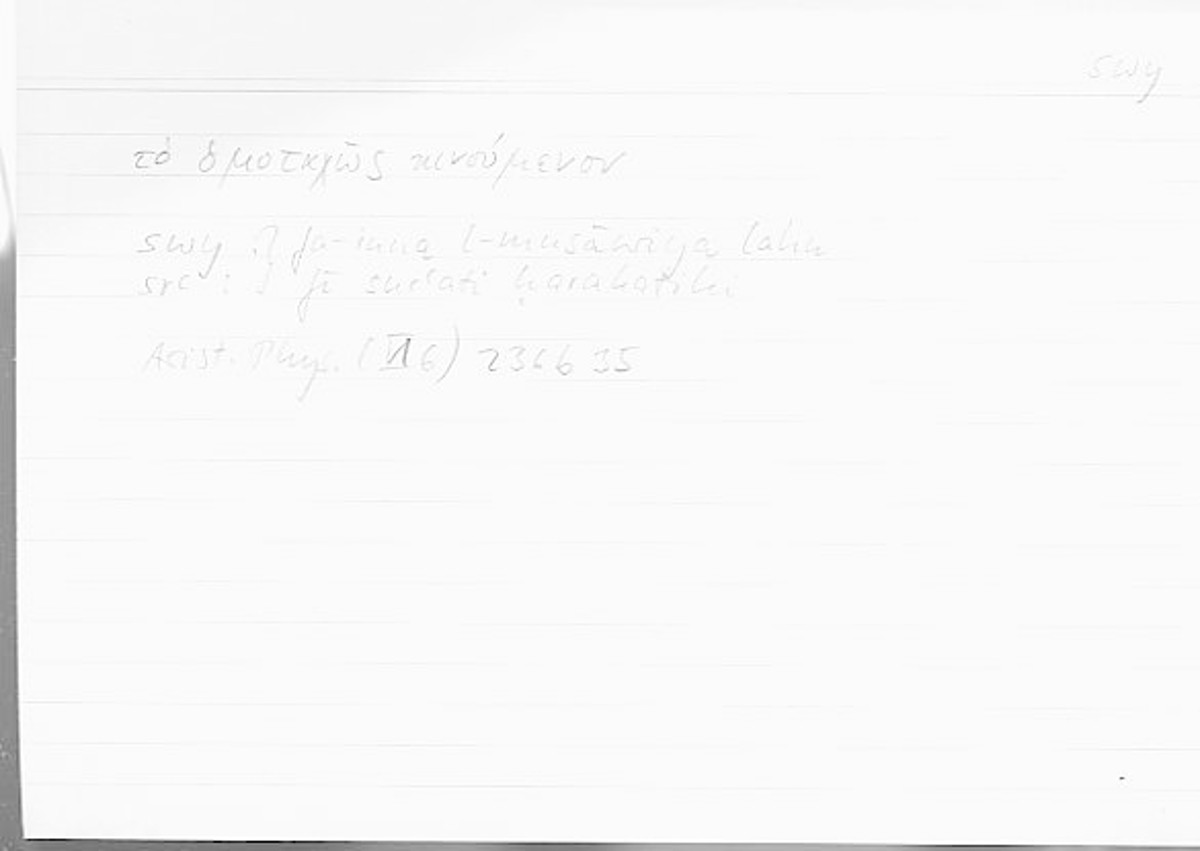 swy
τὸ ὁμοταχῶς κινούμενον
swy : } fa-inna l-musāwiya lahu
srʿ : } fī surʿati ḥarakatihi
Arist. Phys. (VI 6) 236b 35